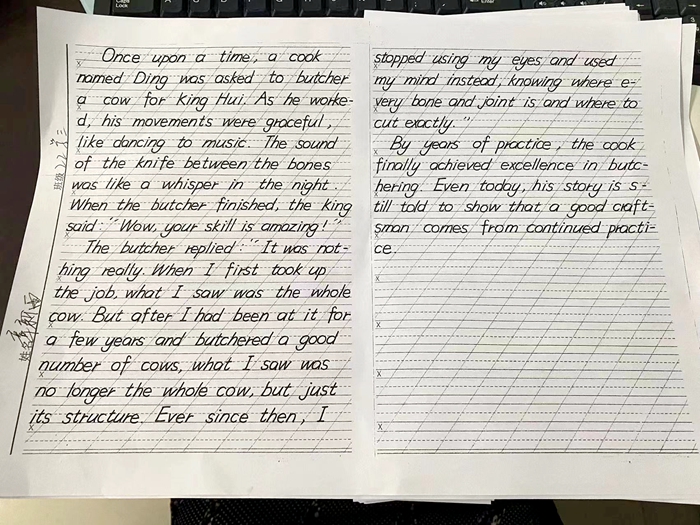 Once upon a time, a cook
named Ding was asked to butcher
a cow for King Hui. As he worke-
d, his movements were graceful,
like dancing to music. The sound
of the knife between the bones
was like a whisper in the night.
When the butcher finished, the king
said:"Wow, your skill is amazing!"
The butcher replied:"It was not-
hing really. When I first took up
the job, what I saw was the whole
cow. But after I had been at it for
a few years and butchered a good
number of cows, what I saw was
no longer the whole cow, but just
its structure. Ever since then, I
stopped using my eyes and used
my mind instead, knowing where e-
very bone and joint is and where to
cut exactly."
By years of practice, the cook
finally achieved excellence in butc-
hering. Even today, his story is s-
till told to show that a good craft-
sman comes from continued practi-
ce.
班级
姓名
Caps
Lock
Enter